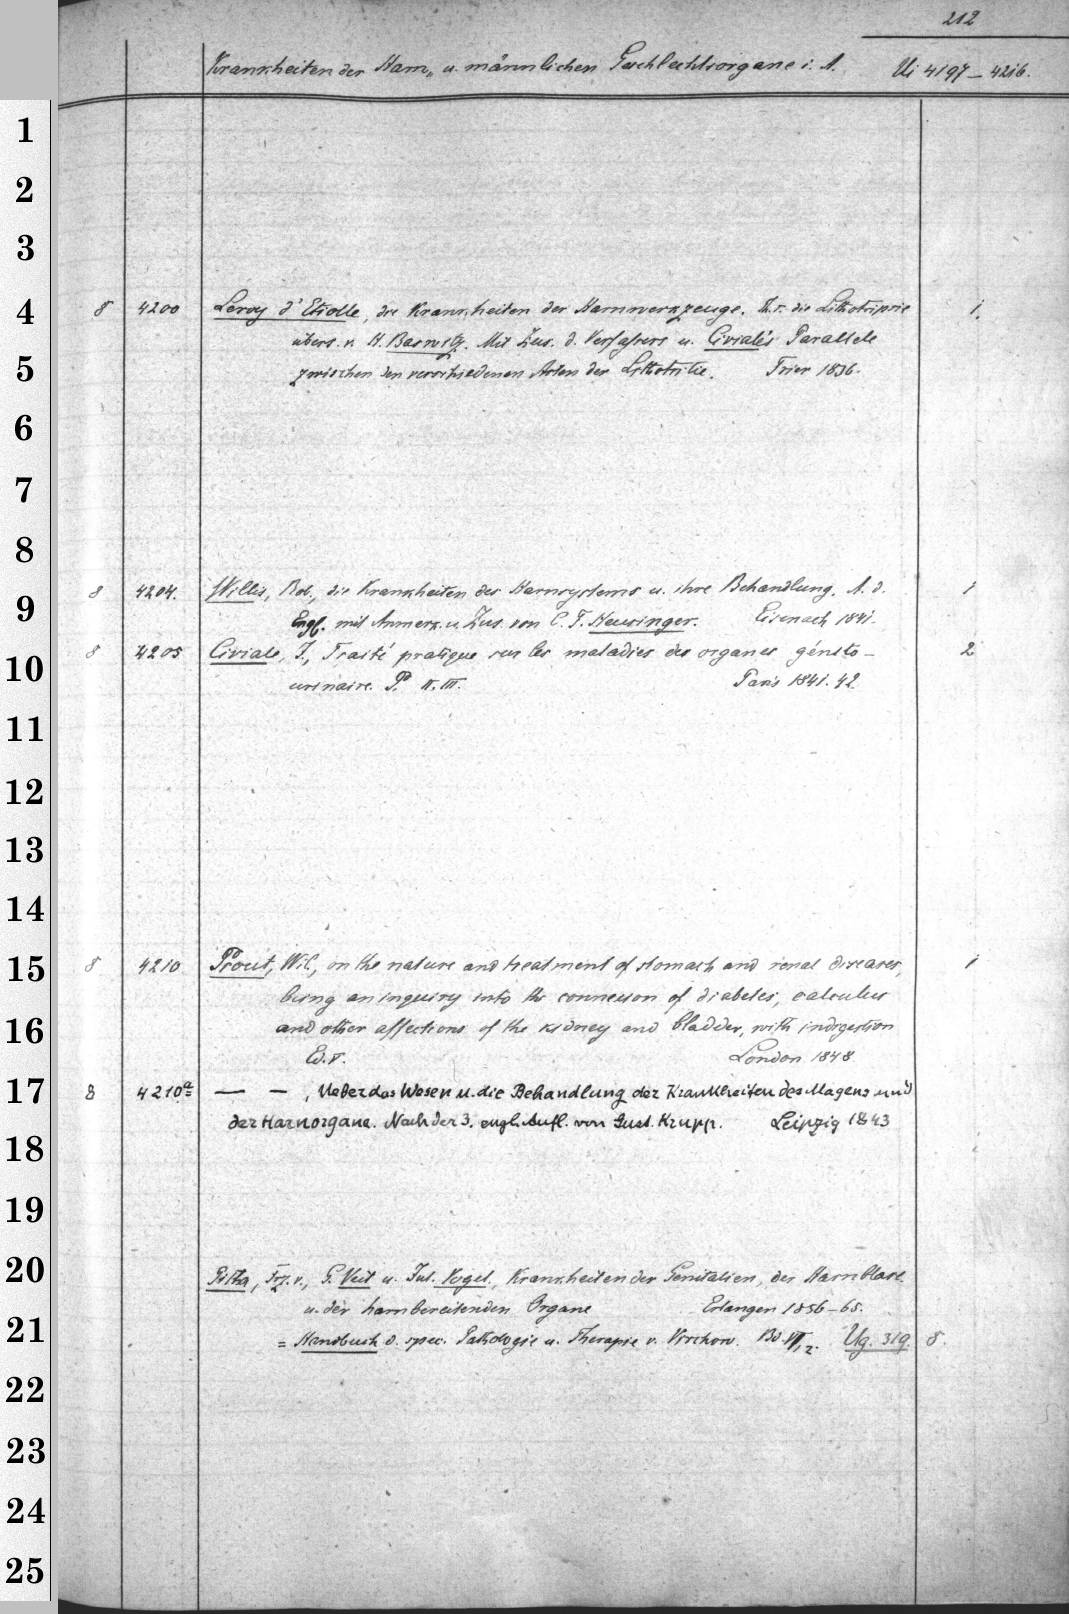 212
Krankheiten der Harn- u. männlichen Geschlechtsorgane i. A. Ui 4197–4216.
1
2
3
4
8 4200 Leroy d'Etiolle, die Krankheiten der Harnwerkzeuge. Th. I. die Lithotripsie 1.
übers. v. H. Mit Zus. d. Verfassers u. Civiale's Parallele
5
zwischen den verschiedenen Arten der Lithotritie. Trier 1836.
6
7
8
8 4204. Willis, Rob., die Krankheiten des Harnsystems u. ihre Behandlung. A. d. 1
9
Engl. mit Anmerk. u. Zus. von C. F. Heusinger. Eisenach 1841.
8 4205 Civiale, J., Traité pratique sur les maladies des organes génito- 2
10
urinaire. P. II. III. Paris 1841. 42
11
12
13
14
15
8 4210 Prout, Wil., on the nature and treatment of stomach and renal diseases, 1
being an inquiry into the connexion of diabetes, calculus
16
and other affections of the kidney and bladder, with indigestion
Ed. V. London 1848
17
8 4210a — — , Ueber das Wesen u. die Behandlung der Krankheiten des Magens und
der Harnorgane. Nach der 3. engl. Aufl. von Gust. Krupp. Leipzig 1843
18
19
20
Pitha, Frz. v., G. Veit u. Jul. Vogel, Krankheiten der Genitalien, der Harnblase
u. der harnbereitenden Organe Erlangen 1856–65.
21
= Handbuch d. spec. Pathologie u. Therapie v. Virchow. Bd VI, 2. Ug. 319. 8.
22
23
24
25